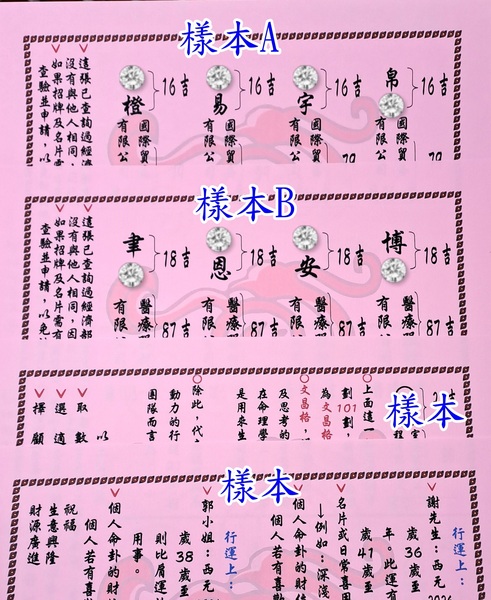 樣本A
帛
16吉
宇
16吉
易
16吉
橙
16吉
國際貿
有限公
國際貿
有限公
國際貿
有限公
國際貿
有限公
這張已查詢過經濟
沒有與他人相同，
如果招牌及名片需
查驗並申請，以
樣本B
博
18吉
安
18吉
恩
18吉
聿
18吉
醫療
有限
87吉
醫療
有限
87吉
醫療
有限
87吉
醫療
有限
87吉
這張已查詢過經濟部
沒有與他人相同，因
如果招牌及名片需有
查驗並申請，以免
樣本
上面這一
劃101劃，
為文昌格，
文昌格，
及思考的
在命理學
是用來生
除此，代
動力的行
團隊而言
以
取數
選適
擇顧
樣本
行運上：
謝先生：西元
歲36歲至
年。此運有
歲41歲至
名片或日常喜用
↓例如：深淺
個人命卦的財位
個人若有喜歡
行運上：
郭小姐：西元
歲38歲至
則比肩運
用事。
個人命卦的財
個人若有喜
祝福
生意興隆
財源廣進